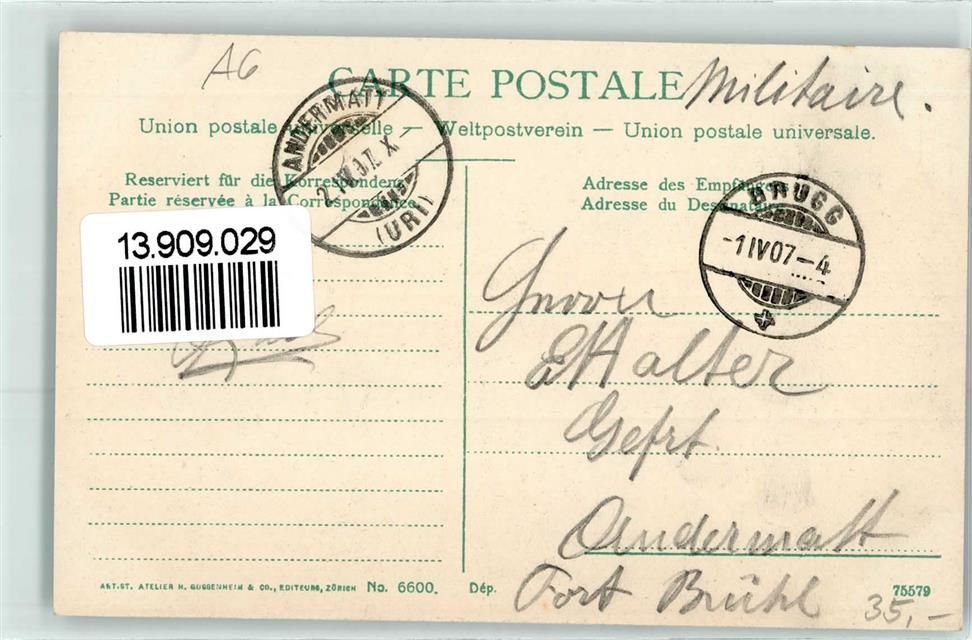 AG
CARTE POSTALE Militaire.
Union postale universelle — Weltpostverein — Union postale universale.
Reserviert für die Korrespondenz
Partie réservée à la Correspondance
Adresse des Empfängers
Adresse du Destinataire
ANDERMATT
2. IV. 07. X
(URI)
BRUGG
-1 IV 07 - 4
13.909.029
E Halter
Gefrt.
Andermatt
Fort Brühl
ART.ST. ATELIER H. GUGGENHEIM & CO., EDITEURS, ZÜRICH No. 6600. Dép. 75579
35,-